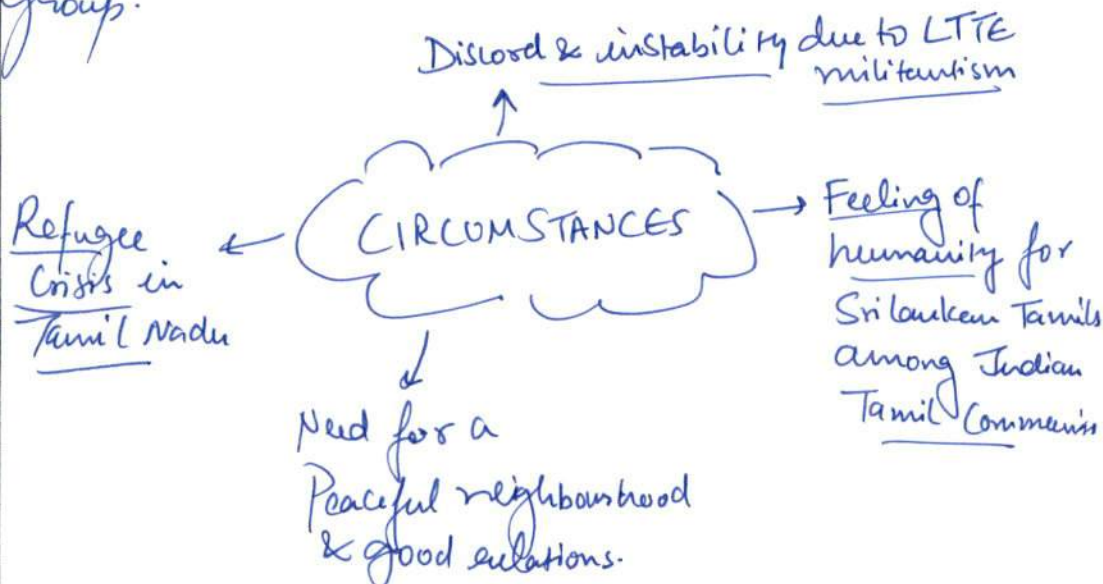 group.
Discord & instability due to LTTE
militantism
CIRCUMSTANCES
Refugee
Crisis in
Tamil Nadu
Feeling of
humanity for
Srilankan Tamils
among Indian
Tamil
Need for a
Peaceful neighbourhood
& good relations.